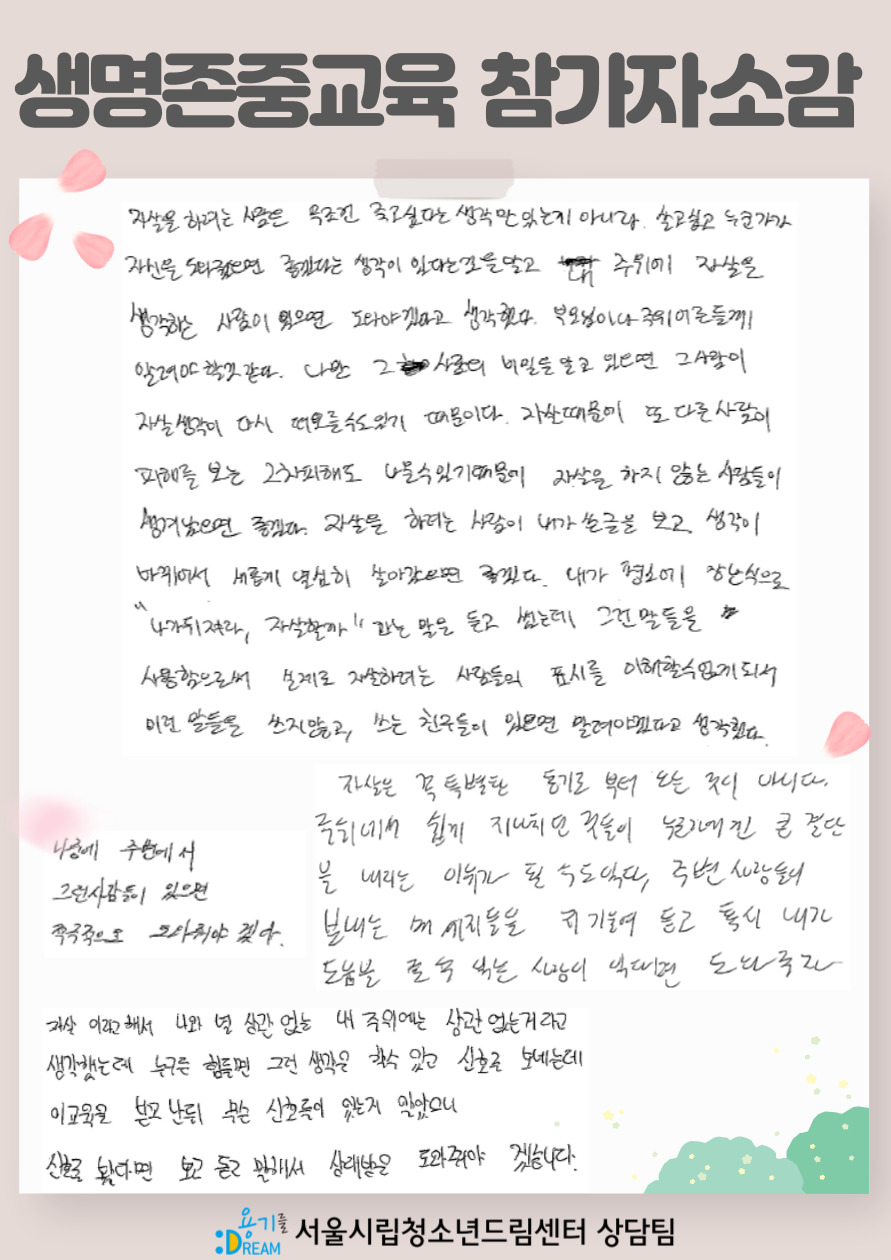 생명존중교육 참가자소감
자살을 하려는 사람은 무조건 죽고싶다는 생각만 있는게 아니라. 살고싶고 누군가가
자신을 도와줬으면 좋겠다는 생각이 있다는것을 알고 내 주위에 자살을
생각하는 사람이 있으면 도와야겠다고 생각했다. 부모님이나 주위어른들께
알려야 할것같다. 나만 그 사람의 비밀을 알고 있으면 그사람이
자살생각이 다시 떠오를수도있기 때문이다. 자살때문에 또 다른사람이
피해를 보는 2차피해도 나올수있기때문에 자살을 하지 않는 사람들이
생겨났으면 좋겠다. 자살을 하려는 사람이 내가 쓴글을 보고 생각이
바뀌어서 새롭게 열심히 살아갔으면 좋겠다. 내가 평소에 장난식으로
"나가뒤져라, 자살할까" 라는 말을 듣고 썼는데 그런말들을
사용함으로써 실제로 자살하려는 사람들의 표시를 이해할수없게되서
이런 말들을 쓰지않고, 쓰는 친구들이 있으면 말려야겠다고 생각했다.
자살은 꼭 특별한 동기로 부터 오는 것이 아니다.
주위에서 쉽게 지나치던 것들이 누군가에겐 큰 결단
을 내리는 이유가 될 수도있다, 주변 사람들이
보내는 메세지들을 귀 기울여 듣고 혹시 내가
도움을 줄 수 있는 사람이 있다면 도와주자
나중에 주변에서
그런사람들이 있으면
적극적으로 도와줘야 겠다.
자살 이라고해서 나와 별 상관없는 내 주위에는 상관 없는거라고
생각했는데 누구든 힘들면 그런 생각은 할수 있고 신호를 보내는데
이교육을 받고 난뒤 무슨 신호들이 있는지 알았으니
신호를 봤다면 보고 듣고 말해서 상대방을 도와줘야 겠습니다.
용기를
:DREAM
서울시립청소년드림센터 상담팀